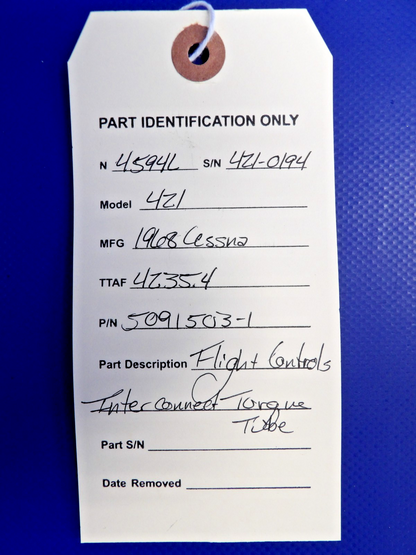 PART IDENTIFICATION ONLY
N 4594L S/N 421-0194
Model 421
MFG 1968 Cessna
TTAF 4235.4
P/N 5091503-1
Part Description Flight Controls
Interconnect Torque
Tube
Part S/N
Date Removed